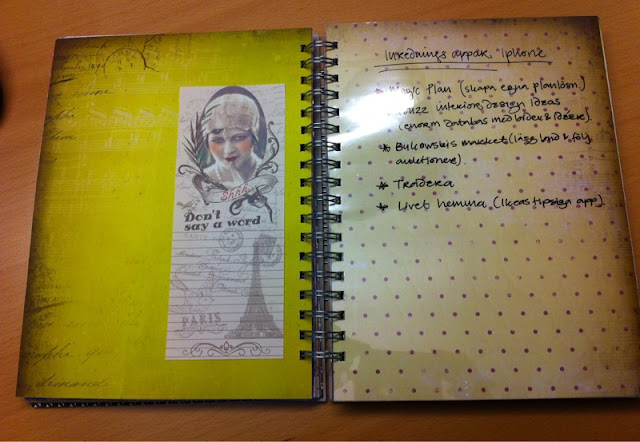 Shhh...
Don't
say a word
PARIS
Inrednings appar iphone
* Magic Plan (skapa egna planlösn.)
Houzz interior design ideas
(enorm databas med bilder & idéer).
* Bukowskis market (lägg bud & följ
auktioner).
* Tradera
* Livet hemma (Ikeas tipsign app)